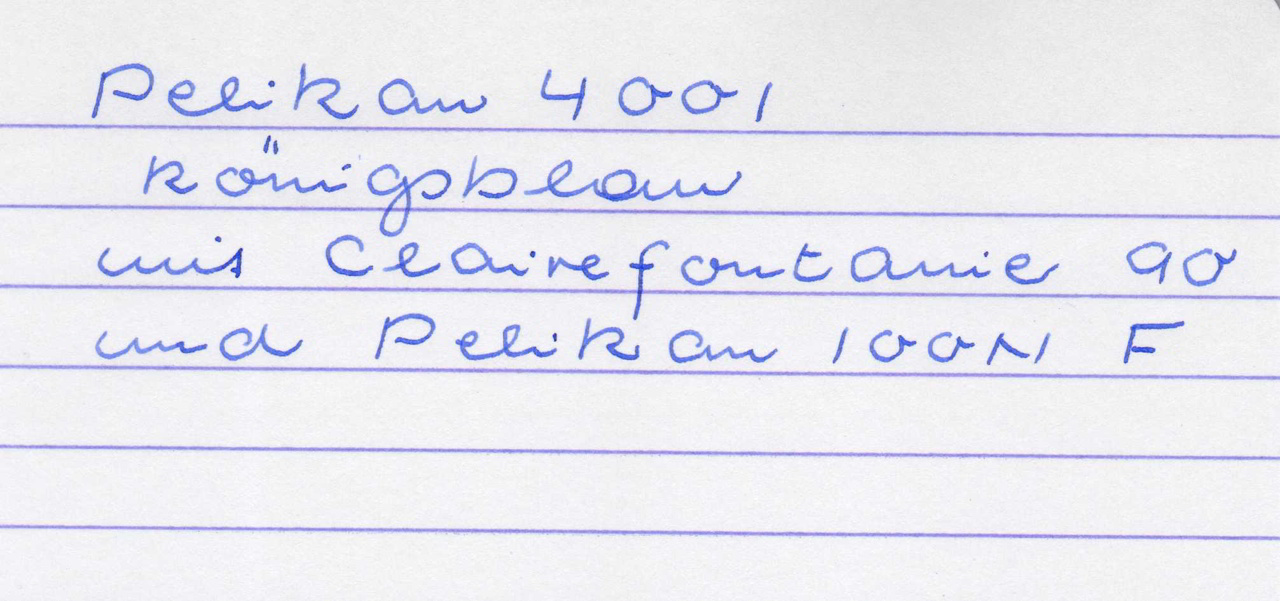 Pelikan 4001
königsblau
mit Clairefontaine 90
und Pelikan 100N F